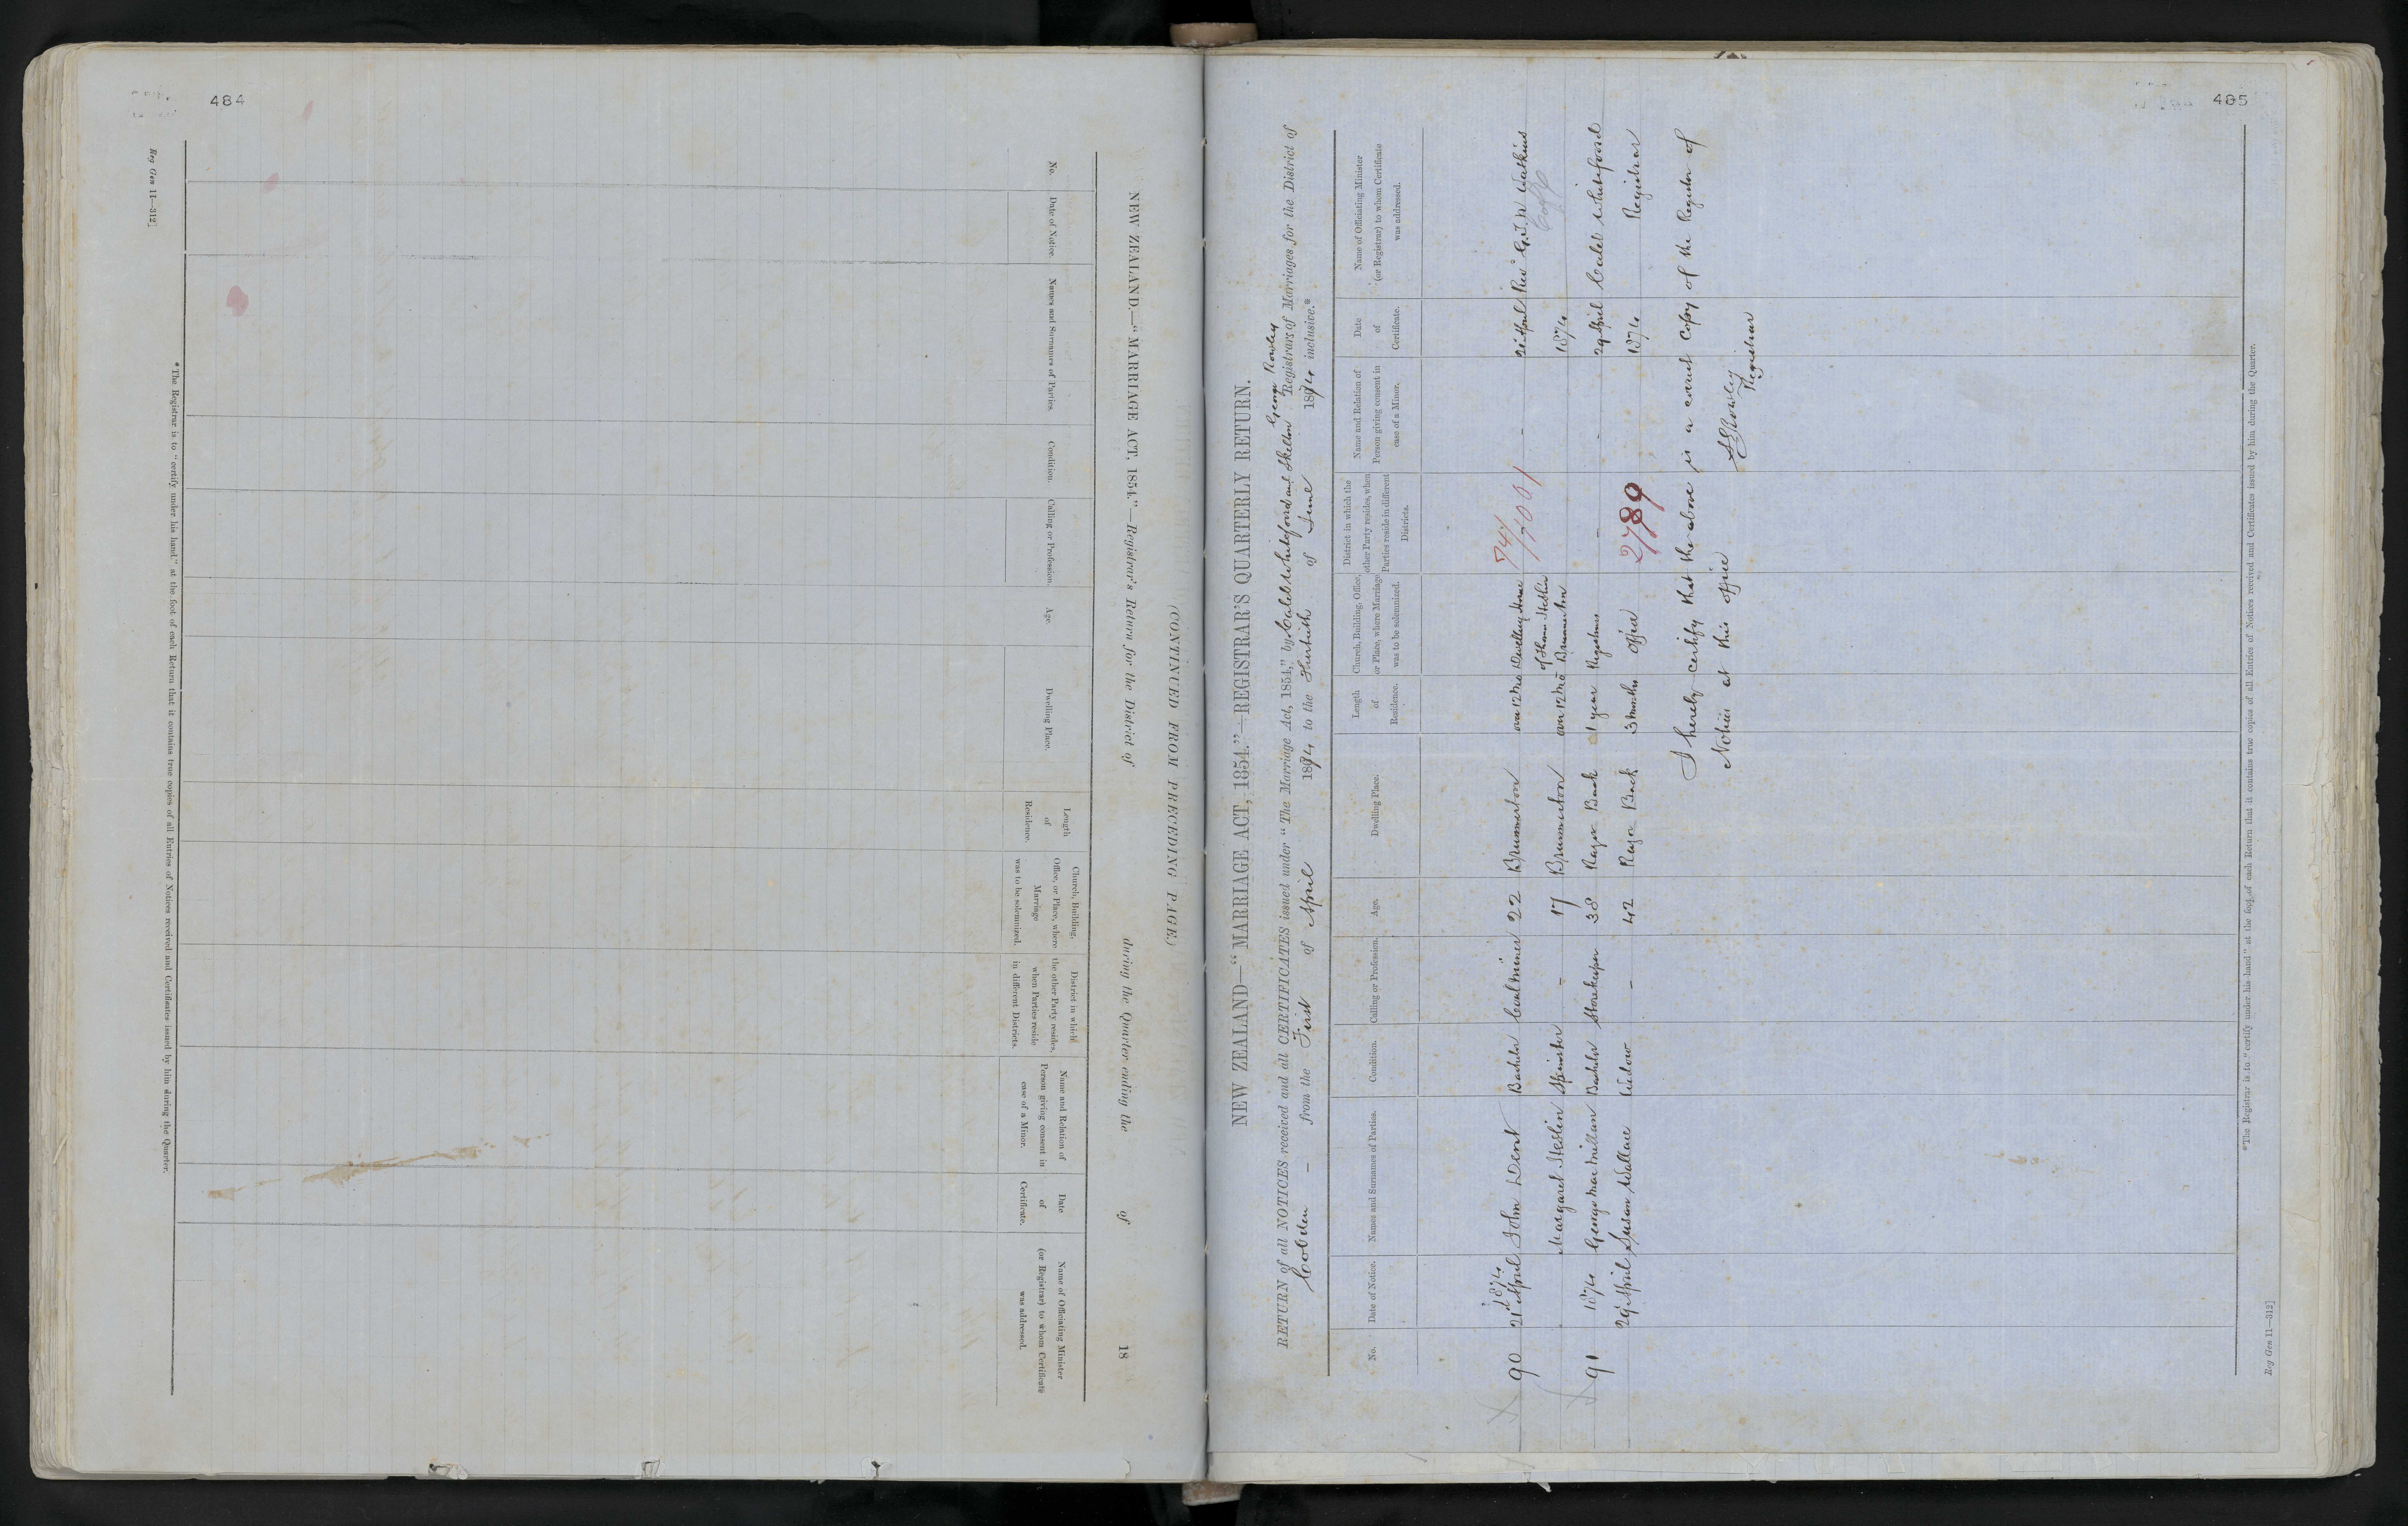 484
(CONTINUED FROM PRECEDING PAGE)
NEW ZEALAND.—"MARRIAGE ACT, 1854."—Registrar's Return for the District of during the Quarter ending the of 18
No.
Date of Notice.
Names and Surnames of Parties.
Condition.
Calling or Profession.
Age.
Dwelling Place.
Length
of
Residence.
Church, Building,
Office, or Place, where
Marriage
was to be solemnized.
District in which
the other Party resides,
when Parties reside
in different Districts.
Name and Relation of
Person giving consent in
case of a Minor.
Date
of
Certificate.
Name of Officiating Minister
(or Registrar) to whom Certificate
was addressed.
*The Registrar is to "certify under his hand" at the foot of each Return that it contains true copies of all Entries of Notices received and Certificates issued by him during the Quarter.
Reg Gen 11—312]
485
NEW ZEALAND—"MARRIAGE ACT, 1854."—REGISTRAR'S QUARTERLY RETURN.
George Rowley
RETURN of all NOTICES received and all CERTIFICATES issued under "The Marriage Act, 1854," by Caleb Whitefoord and Skelton Registrars of Marriages for the District of
Cobden — from the First of April 1874 to the Thirtieth of June 1874 inclusive.*
No.
Date of Notice.
Names and Surnames of Parties.
Condition.
Calling or Profession.
Age.
Dwelling Place.
Length
of
Residence.
Church, Building, Office,
or Place, where Marriage
was to be solemnized.
District in which the
other Party resides, when
Parties reside in different
Districts.
Name and Relation of
Person giving consent in
case of a Minor.
Date
of
Certificate.
Name of Officiating Minister
(or Registrar) to whom Certificate
was addressed.
1874
90 21 April John Dent Bachelor Coal Miner 22 Brunnerton over 12 mo Dwelling House — 21 April Revd G. T. N. Watkins
of Thomas Heslin
Margaret Heslin Spinster — 17 Brunnerton over 12 mo Brunnerton 1874
91 1874 George MacMillan Bachelor Storekeeper 38 Raza Back 1 year Registrars — — 29 April Caleb Whitefoord
29 April Susan Wallace Widow — 42 Raza Back 3 months office 1874 Registrar
2789
I hereby certify that the above is a correct copy of the Register of
Notices at this office
Rowley
Registrar
*The Registrar is to "certify under his hand" at the foot of each Return that it contains true copies of all Entries of Notices received and Certificates issued by him during the Quarter.
Reg Gen 11—312]